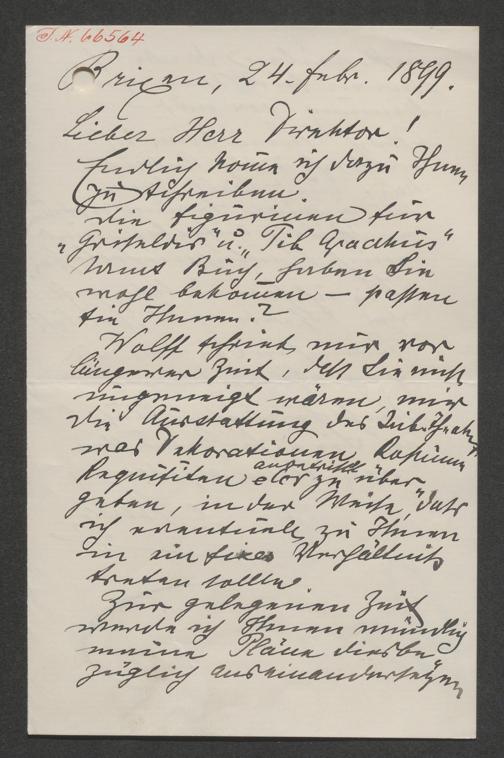 T.N. 66564
Brixen, 24. febr. 1899.
Lieber Herr Direktor!
Endlich komme ich dazu Ihnen
zu schreiben.
Die figurinen für
„Griseldis" u. „Tib. Gracchus"
samt Buch, haben Sie
wohl bekommen — passen
sie Ihnen?
Wolff schrieb mir vor
längerer Zeit, daß Sie nicht
ungeneigt wären, mir
die Ausstattung des Jub. Theaters
was Dekorationen, Kostüme
Requisiten etc zu über
geben, in der Weise, daß
ich eventuell zu Ihnen
in ein fixes Verhältniß
treten sollte.
Zur gelegenen Zeit
werde ich Ihnen mündlich
meine Pläne diesbe
züglich auseinandersetzen